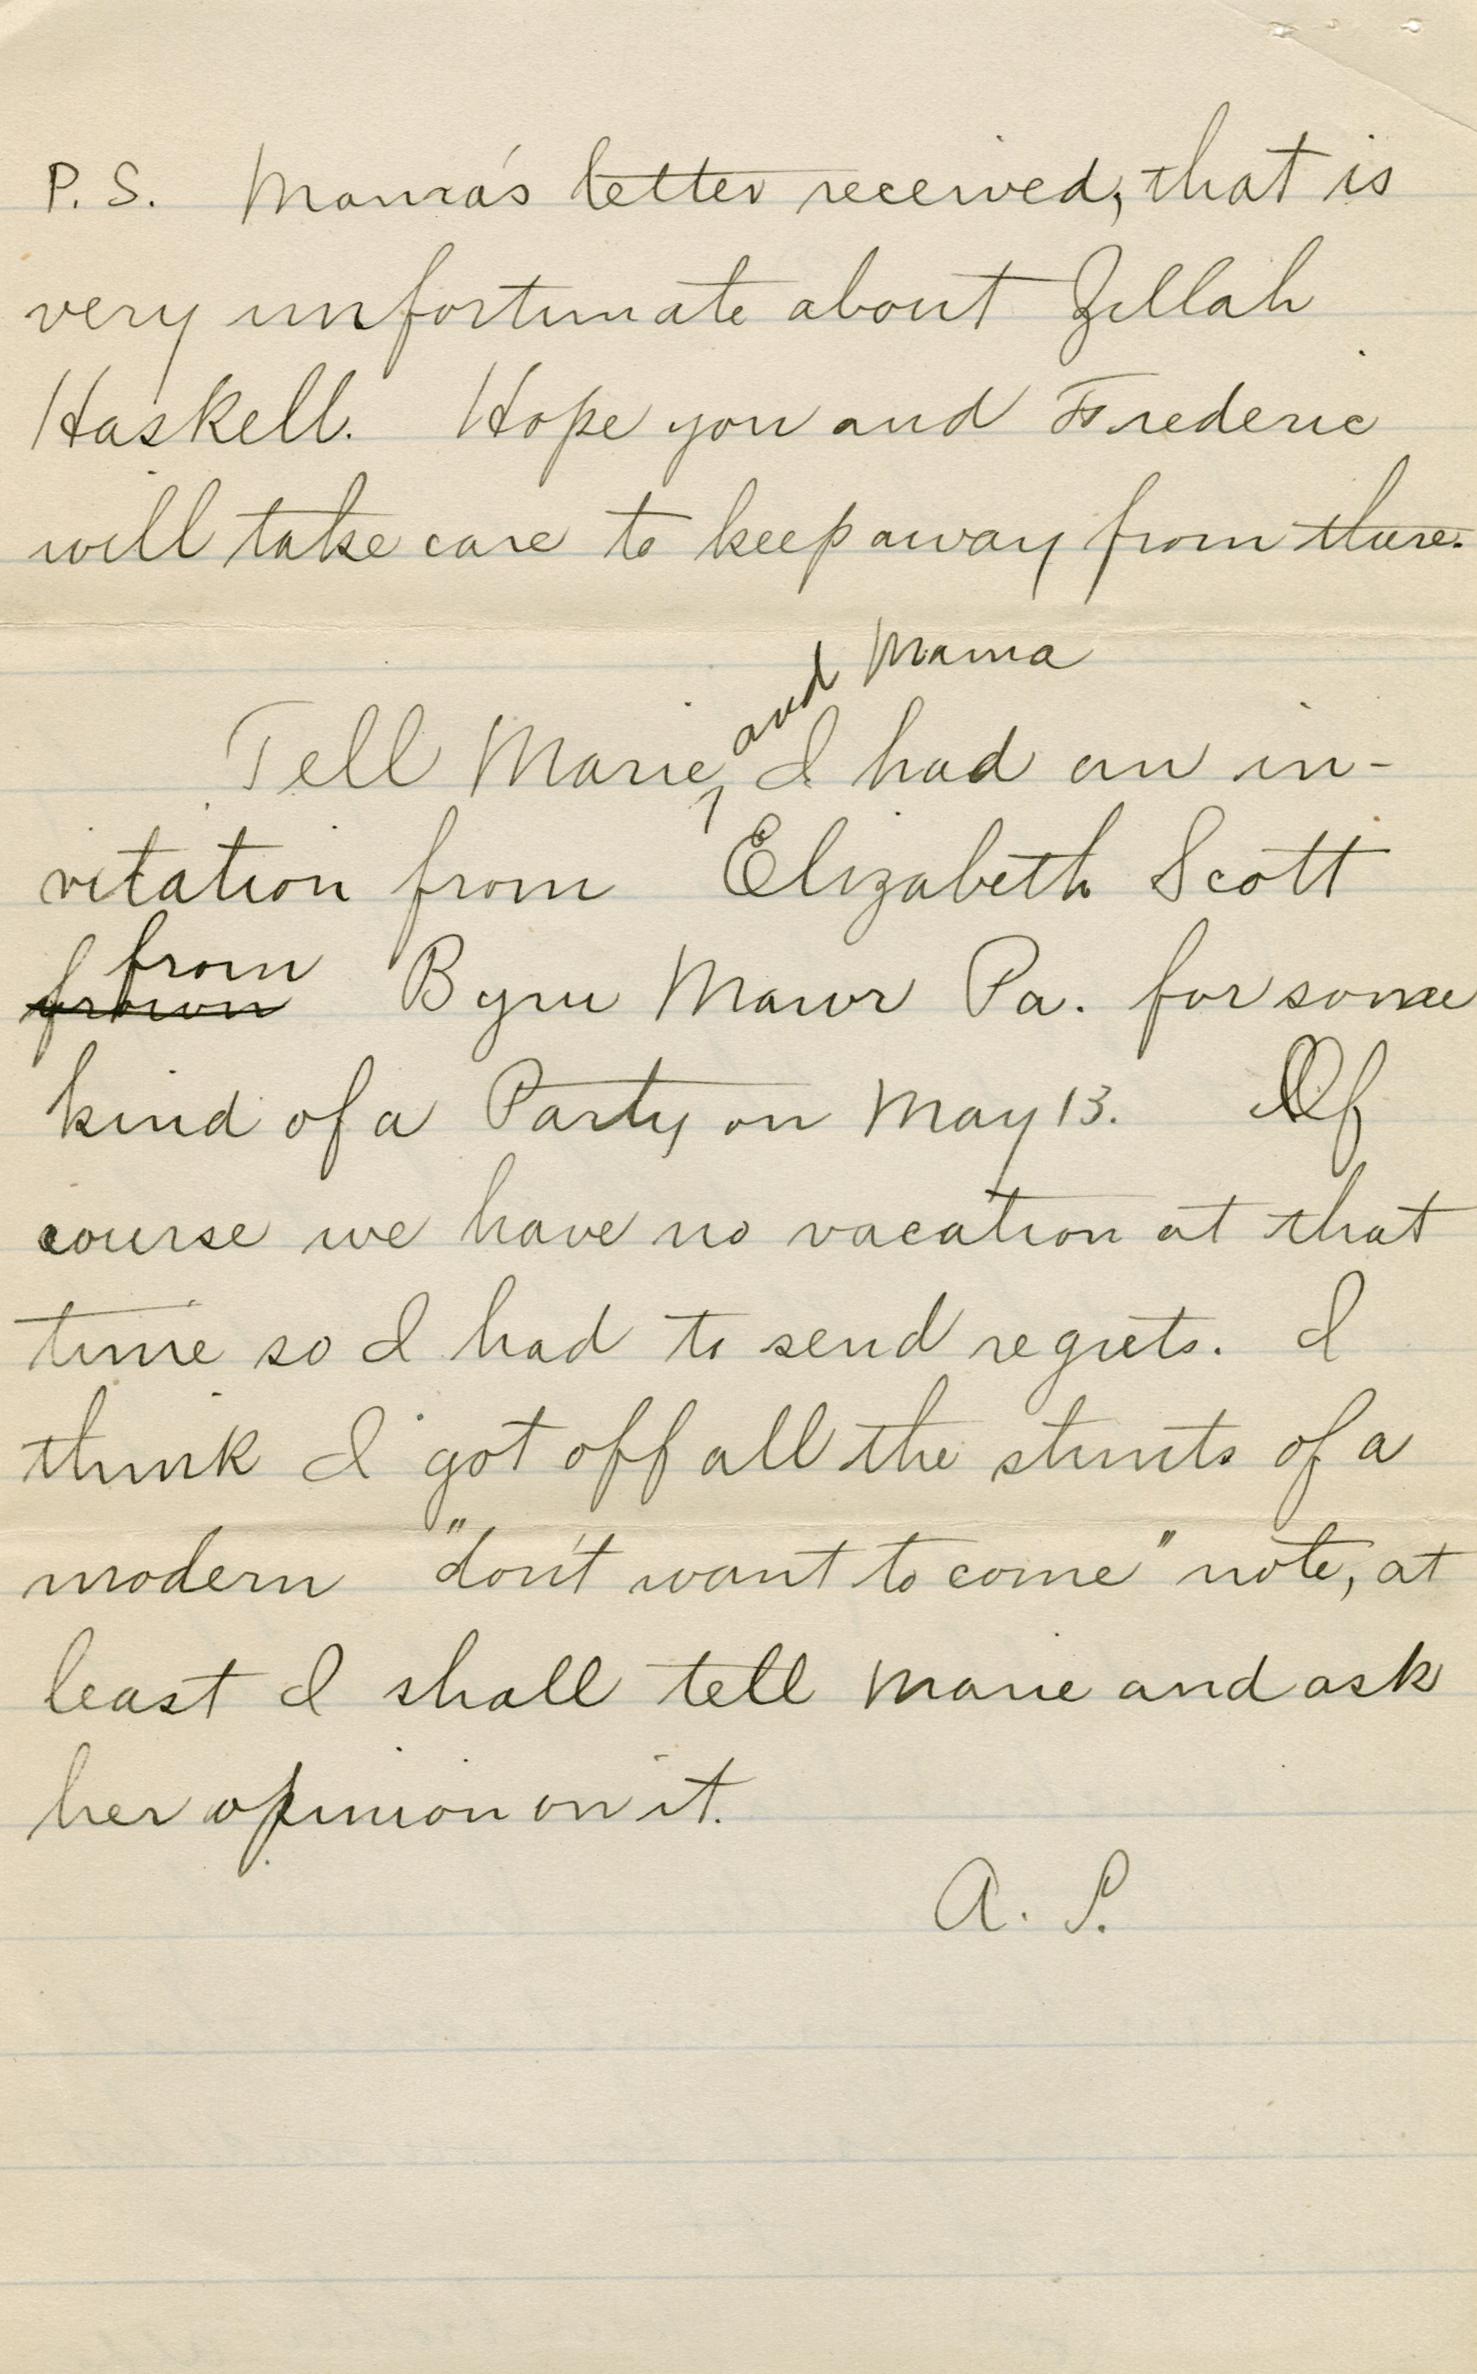 P.S. Mama's letter received, that is
very unfortunate about Zillah
Haskell. Hope you and Frederic
will take care to keep away from there.
and Mama
Tell Marie, I had an in-
vitation from Elizabeth Scott
from
frown Bynu Mawr Pa. for some
kind of a Party on May 13. Of
course we have no vacation at that
time so I had to send regrets. I
think I got off all the stunts of a
modern "don't want to come" note, at
least I shall tell Marie and ask
her opinion on it.
A. S.